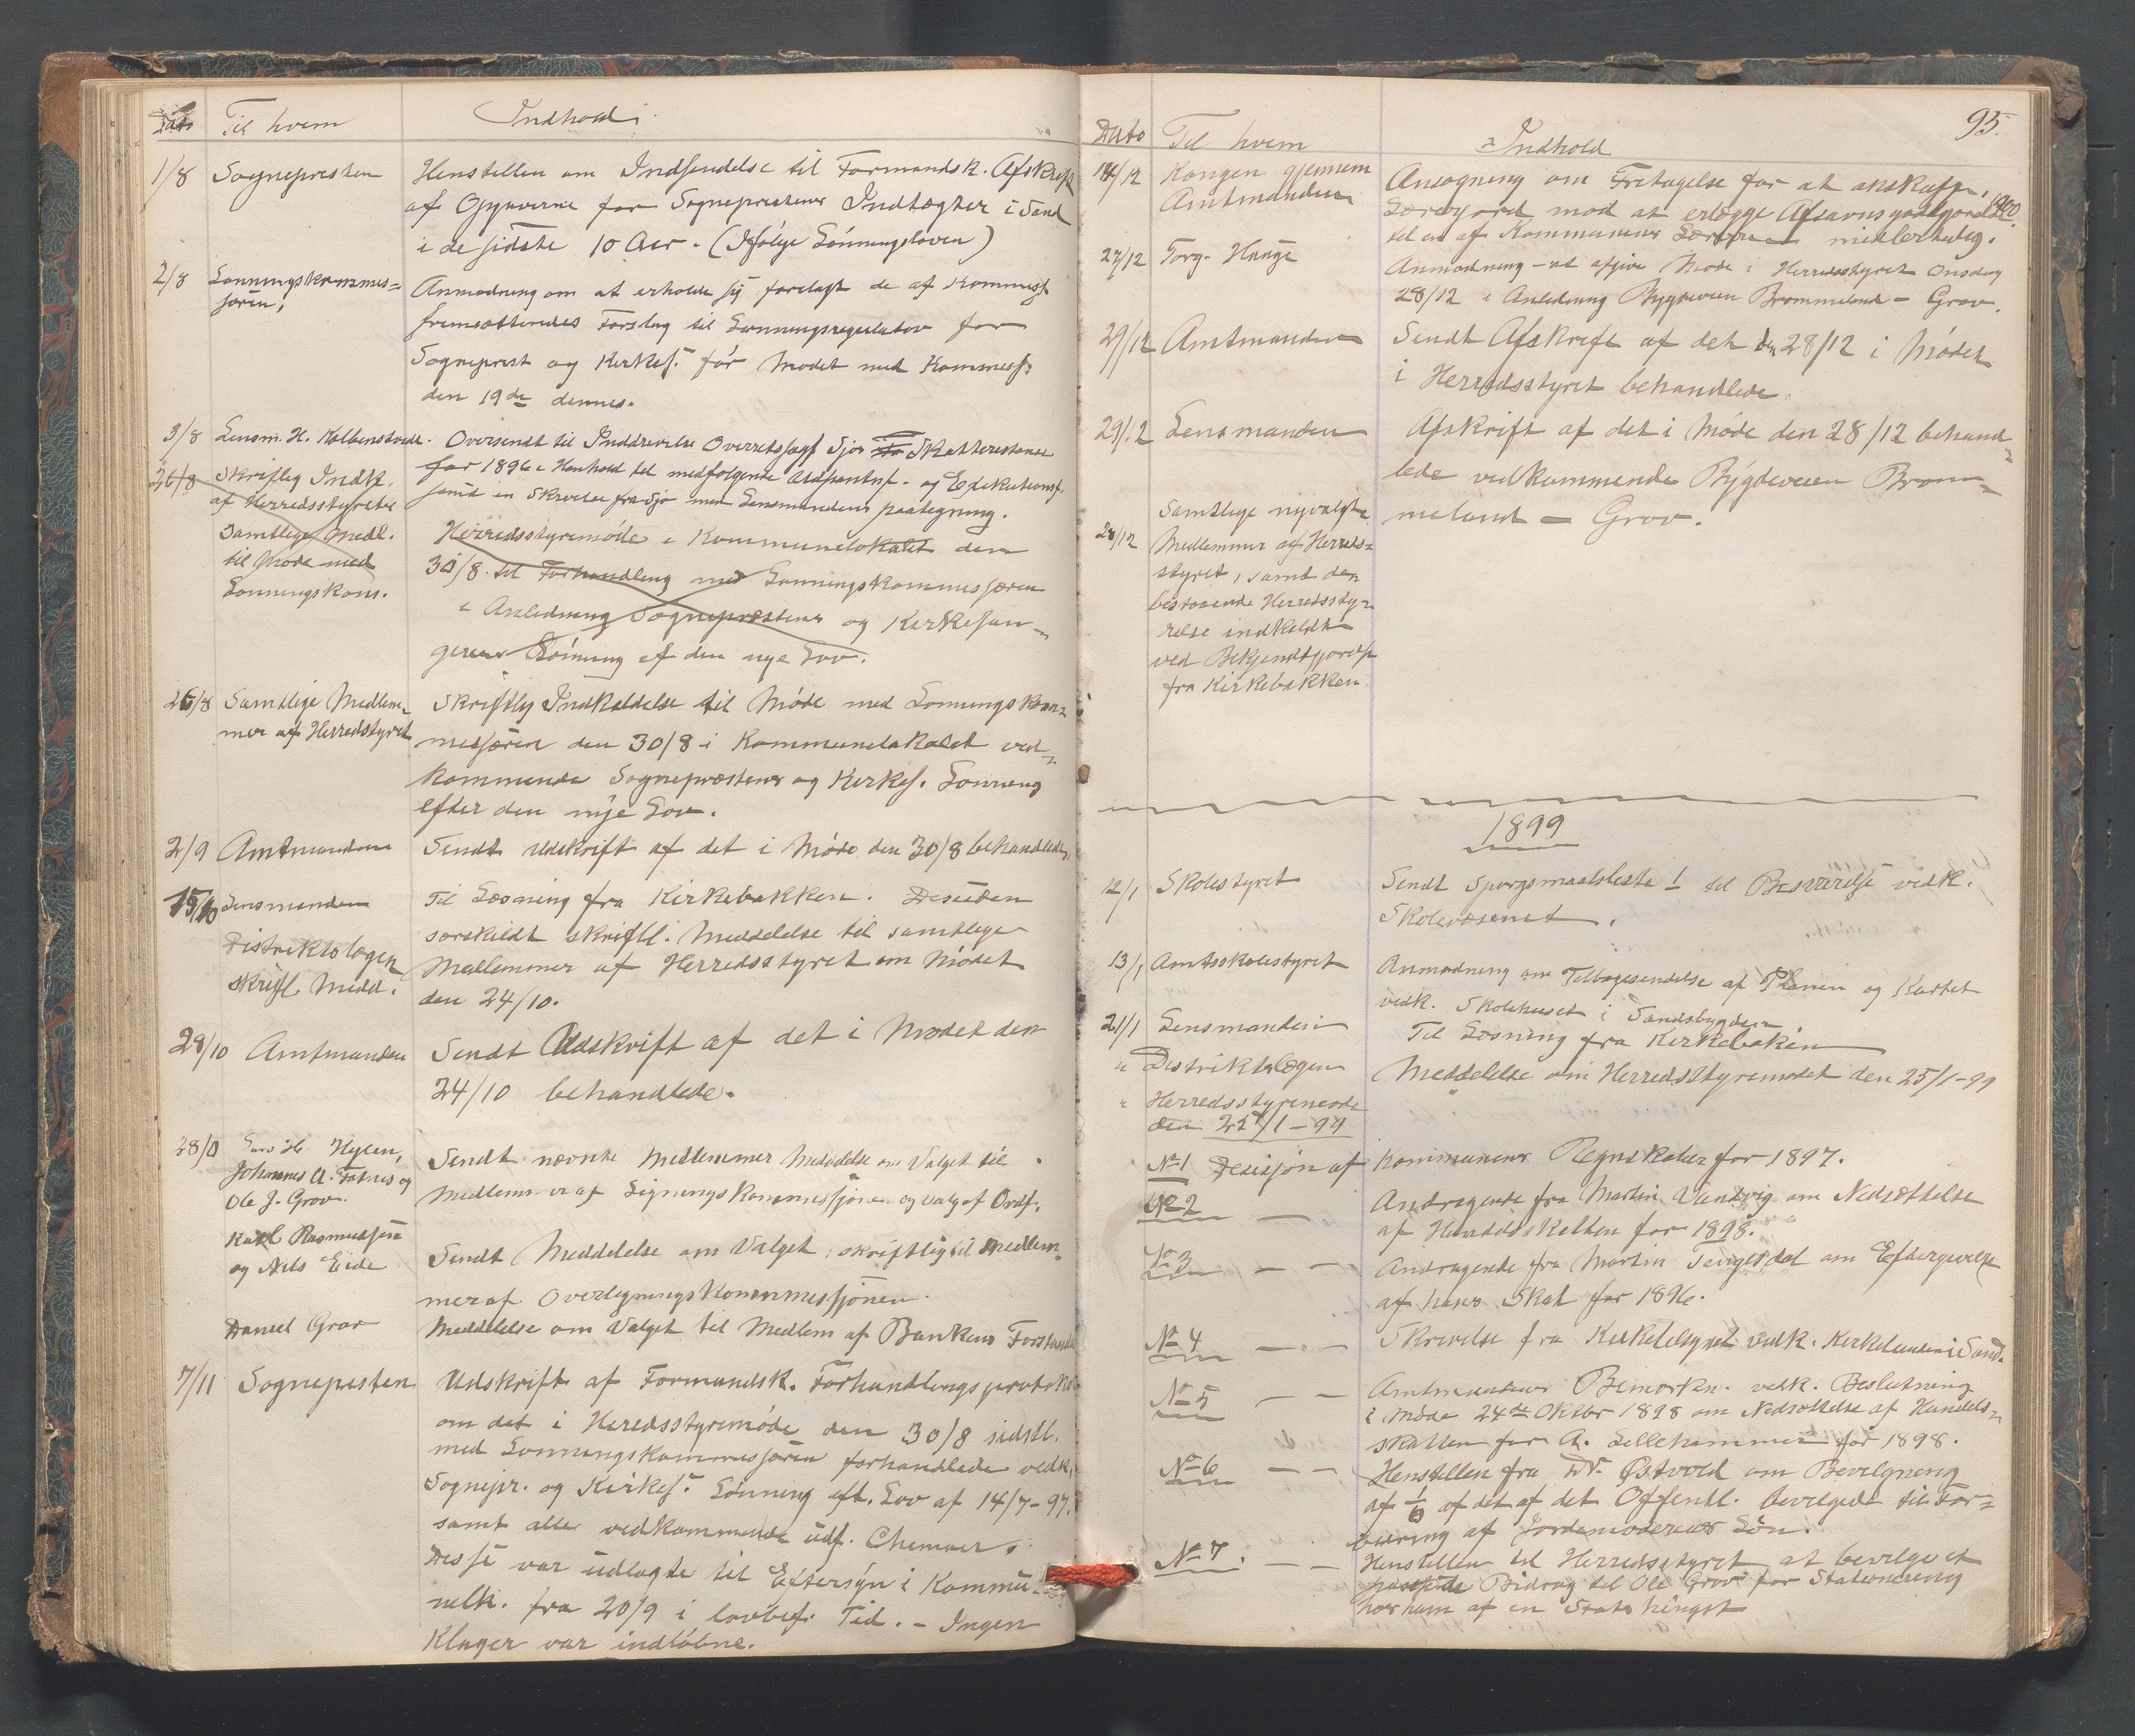 Dato Til hvem Indhold
1/8 Sognepresten Henstillen om Indsendelse til Formandsk. Afskrift
af Opgaverne for Sogneprestens Indtægter i Sand
i de sidste 10 Aar. (Ifølge Lønningsloven)
2/8 Lønningskommis=
søren, Anmodning om at erholde sig forelagt de af Kommiss.
fremsatteredes Forslag til Lønningsregulativ for
Sogneprest og Kirkes. før Mødet med Kommiss.
den 19de dennes.
3/8 Lensm. H. Kolbenstvedt. Oversendt til Inddrivelse Overretssagf Sjør Skatterestanse
for 1896 i Henhold til medfølgende og Exekutionsf.
samt en Skrivelse fra Sjø med Lensmandens paategning.
26/8 Skriftlig Indk.
af Herredsstyrets
Samtlige Medl.
til Møde med
Lønningskom.
Herredsstyremøde i Kommunelokalet den
30/8 til Forhandling med Lønningskommissøren
i Anledning Sogneprestens og Kirkesan=
gerens Lønning ef den nye Lov.
26/8 Samtlige Medlem=
mer af Herredsstyret
Skriftlig Indkaldelse til Møde med Lønningskom=
missøren den 30/8 i Kommunelokalet ved=
kommende Sogneprestens og Kirkes. Lønning
efter den nye Lov.
2/9 Amtmanden Sendt Udskrift af det i Møde den 30/8 behandlede.
15/10 Lensmanden Til Læsning fra Kirkebakken. Desuden
særskildt skriftl. Meddelelse til samtlige
Distriktslægen
skriftl. Medd.
Medlemmer af Herredsstyret om Mødet
den 24/10.
28/10 Amtmanden Sendt Udskrift af det i Mødet den
24/10 behandlede.
28/10 Lars H. Hylen,
Johannes A. Fatnes og
Ole J. Grov.
Sendt nævnte Medlemmer Meddelelse om Valget til
Medlemmer af Ligningskommissjonen og valg af Ordf.
Karl Rasmussen
og Nils Eide
Sendt Meddelelse om Valget, skriftlig til Medlem=
mer af Overligningskommissjonen.
Daniel Grov Meddelelse om Valget til Medlem af Bankens Forstander
7/11 Sognepresten Udskrift af Formandsk. Forhandlingsprotokol
om det i Heredsstyremøde den 30/8 sidstl.
med Lønningskommissøren forhandlede vedk.
Sognepr. og Kirkes. Lønning eft. Lov af 14/7-97.
samt alle vedkommende udf. Chemaer.
Disse var udlagte til Eftersyn i Kommu=
nelk. fra 20/9 i lovbef. Tid. - Ingen
Klager var indløbne.
95.
Dato Til hvem Indhold
14/12 Kongen gjennem
Amtmanden
Ansøgning om Fritagelse for at anskaffe
Lærerjord mod at erlægge Afsavnsgodtgjørelse
til en af Kommunens Lærere midlertidig.
27/12 Torg. Hauge Anmodning at afgive Møde i Herredsstyret Onsdag
28/12 i Anledning Bygdeveien Brommeland - Grov.
29/12 Amtmanden Sendt Afskrift af det den 28/12 i Mødet
i Herredsstyret behandlede
29/12 Lensmanden Afskrift af det i Møde den 28/12 behand=
lede vedkommende Bygdeveien Brom=
meland - Grov.
28/12 Samtlige nyvalgte
Medlemmer af Herreds=
styret, samt den
bestaaende Herredssty=
relse indkaldt
ved Bekjendtgjørelse
fra Kirkebakken
1899
12/1 Skolestyret Sendt Spørgsmaalsliste 1 til Besvarelse vedk.
Skolevæsenet.
13/1 Amtsskolestyret Anmodning om Tilbagesendelse af Planen og Kartet
vedk. Skolehuset i Sandsbygden
21/1 Lensmanden Til Læsning fra Kirkebakken
" Distriktslægen Meddelelse om Herredsstyremødet den 25/1-99
" Herredsstyremøde
den 25/1-99
No 1 Desisjon af Kommunens Regnskaber for 1897.
No 2 — Andragende fra Martin Vandvig om Nedsættelse
af Handelsskatten for 1898.
No 3 — — Andragende fra Martin Tengesdal om Eftergivelse
af hans Skat for 1896.
No 4 — — Skrivelse fra Kirketilsynet vedk. Kirketunden i Sand.
No 5 — — Amtmandens Bemærkn. vedk. Beslutning
i Møde 24de Oktbr 1898 om Nedsættelse af Handels=
skatten for A. Lillehammer for 1898.
No 6 — — Henstillen fra Dr. Østvold om Bevilgning
af 1/6 af det af det Offentl. bevilgede til For=
bedring af Jordemoderens Løn.
No 7. — — Henstillen til Herredsstyret at bevilge et
passende Bidrag til Ole Grov for Stationering
hos ham af en Statshingst